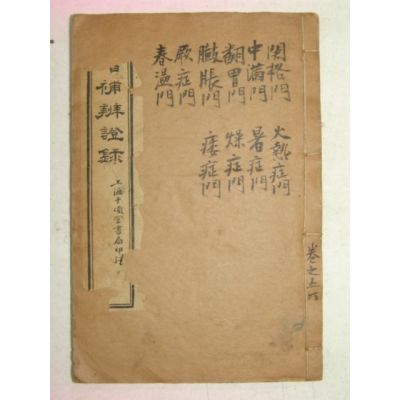 関格門 火熱症門
中滿門 暑症門
翻胃門 燥症門
臌脹門 痿症門
厥症門
春温門
卷之五六
補辨證錄
上海千頃堂書局印行